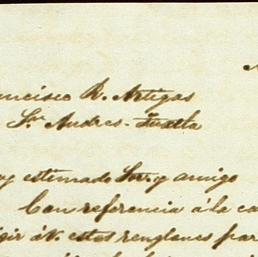 ncisco R. Artigas
Sn. Andres-Tuxtla
y estimado Sor. y amigo
Con referencia á la ca
gir á V. estos renglones par